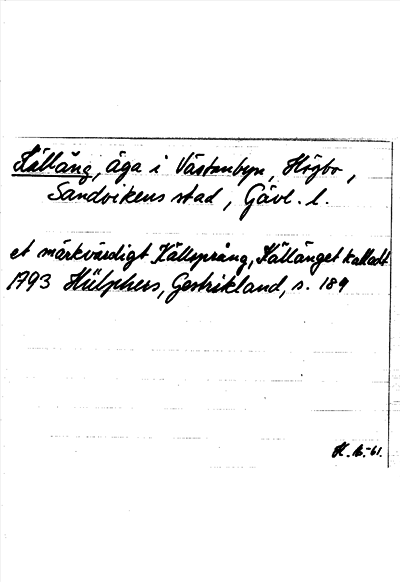 Källäng, äga i Västanbyn, Högbo,
Sandvikens stad, Gävl. l.
et märkvärdigt Källsprång, Källänget kalladt
1793 Hülphers, Gestrikland, s. 189